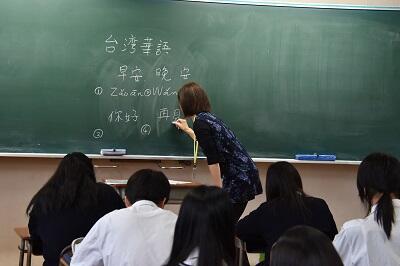 台湾華語
早安 晚安
① Zǎo ān ② Wǎn
你好 再見
③ ④